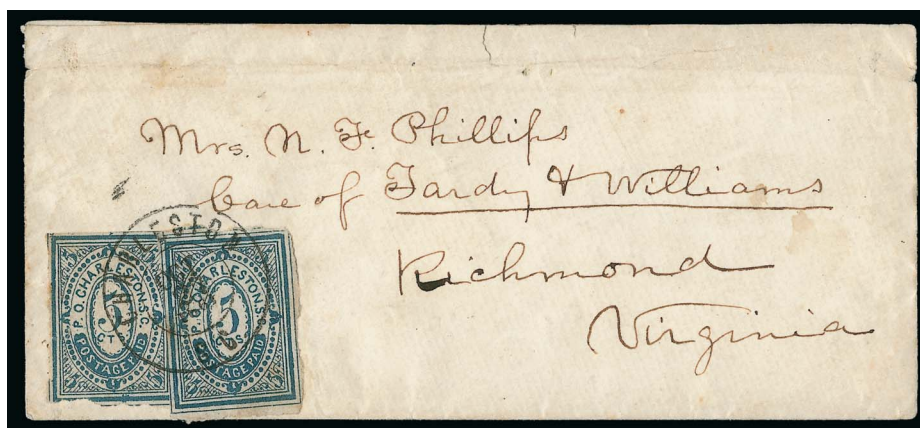 Mrs. N. F. Phillips
Care of Tardy & Williams
Richmond
Virginia
CHARLESTON
P.O. CHARLESTON.S.C.
5
CTS
POSTAGE PAID
P.O. CHARLESTON.S.C.
5
CTS
POSTAGE PAID